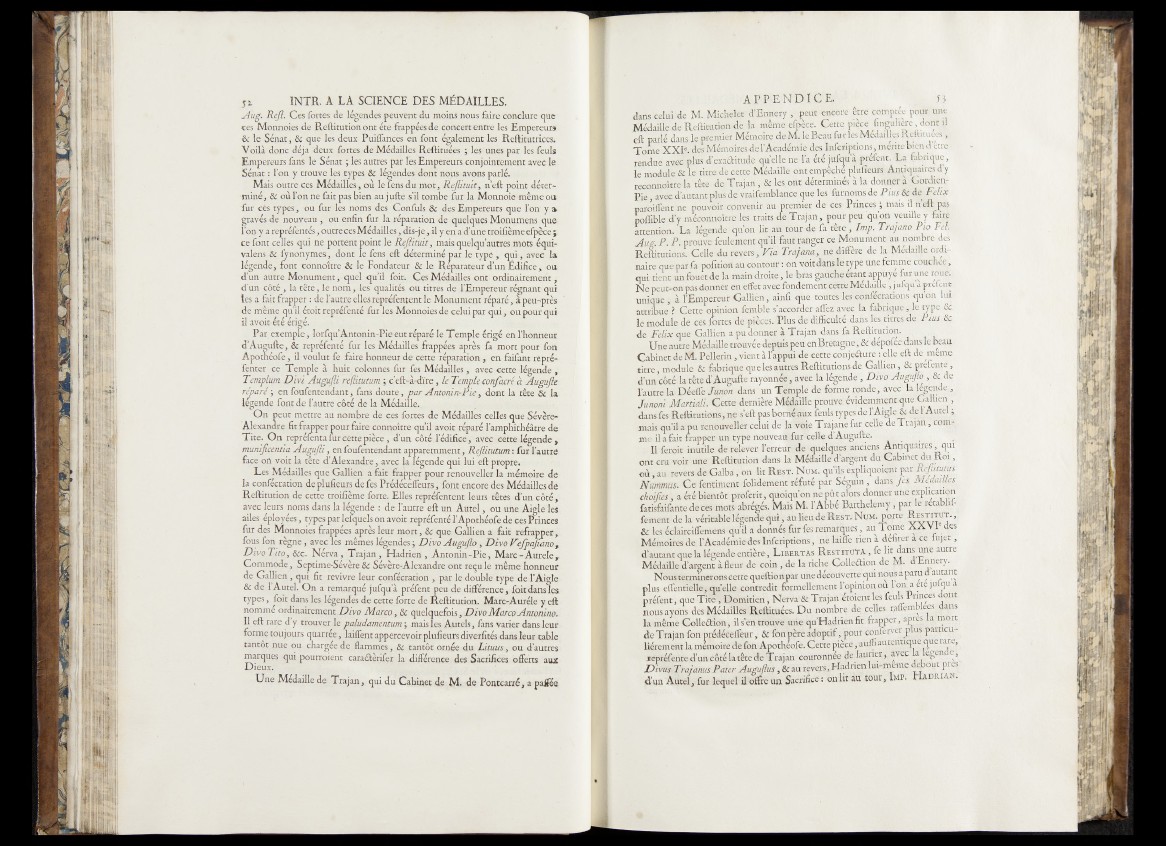 52 INTR. A LA SCIENCE DES MÉDAILLES.
Aug. Rest. Ces sortes de légendes peuvent du moins nous faire conclure que
ces Monnoies de Restitution ont été frappées de concert entre les Empereurs
& le Sénat, & que les deux Puissances en sont également les Restitutrices.
Voilà donc déja deux sortes de Médailles Restituées ; les unes par les seuls
Empereurs sans le Sénat ; les autres par les Empereurs conjointement avec le
Sénat : l'on y trouve les types & légendes dont nous avons parlé.
Mais outre ces Médailles, où le sens du mot, Restituit, n'est point déter-
miné, & où l'on ne sait pas bien au juste s'il tombe sur la Monnoie même ou
sur ces types, ou sur les noms des Consuls & des Empereurs que l'on y a
gravés de nouveau, ou enfin sur la réparation de quelques Monumens que
l'on y a représentés, outre ces Médailles, dis-je, il y en a d'une troisième espèce ;
ce sont celles qui ne portent point le Restituit, mais quelqu'autres mots équi-
valens & synonymes, dont le sens est déterminé par le type, qui, avec la
légende, font connoître & le Fondateur & le Réparateur d'un Édifice, ou
d'un autre Monument, quel qu'il soit. Ces Médailles ont ordinairement,
d'un côté, la tête, le nom, les qualités ou titres de l'Empereur régnant qui
les a fait frapper : de l'autre elles représentent le Monument réparé, à peu-près
de même qu'il étoit représenté sur les Monnoies de celui par qui, ou pour qui
il avoit été érigé.
Par exemple, lorsqu'Antonin-Pie eut réparé le Temple érigé en l'honneur
d'Auguste, & représenté sur les Médailles frappées après sa mort pour son
Apothéose, il voulut se faire honneur de cette réparation, en faisant repré-
senter ce Temple à huit colonnes sur ses Médailles, avec cette légende,
Templum Divi Augusti restitutum ; c'est-à-dire, le Temple consacré à Auguste
réparé ; en sousentendant, sans doute, par Antonin-Pie, dont la tête & la
légende sont de l'autre côté de la Médaille.
On peut mettre au nombre de ces sortes de Médailles celles que Sévère-
Alexandre fit frapper pour faire connoître qu'il avoit réparé l'amphithéâtre de
Tite. On représenta sur cette pièce, d'un côté l'édifice, avec cette légende,
munificentia Augusti, en sousentendant apparemment, Restitutum : sur l'autre
face on voit la tête d'Alexandre, avec la légende qui lui est propre.
Les Médailles que Gallien a fait frapper pour renouveller la mémoire de
la consécration de plusieurs de ses Prédécesseurs, sont encore des Médailles de
Restitution de cette troisième sorte. Elles représentent leurs têtes d'un côté,
avec leurs noms dans la légende : de l'autre est un Autel, ou une Aigle les
ailes éployées, types par lesquels on avoit représenté l'Apothéose de ces Princes
sur des Monnoies frappées après leur mort, & que Gallien a fait refrapper,
sous son règne, avec les mêmes légendes ; Divo Augusto, Divo Vespasiano,
Divo Tito, &c. Nerva, Trajan, Hadrien, Antonin-Pie, Marc-Aurele,
Commode, Septime-Sévère & Sévère-Alexandre ont reçu le même honneur
de Gallien, qui fit revivre leur consécration, par le double type de l'Aigle
& de l'Autel. On a remarqué jusqu'à présent peu de différence, soit dans les
types, soit dans les légendes de cette sorte de Restitution. Marc-Aurèle y est
nommé ordinairement Divo Marco, & quelquefois, Divo Marco Antonino.
Il est rare d'y trouver le paludamentum ; mais les Autels, sans varier dans leur
forme toujours quarrée, laissent appercevoir plusieurs diversités dans leur table
tantôt nue ou chargée de flammes, & tantôt ornée du Lituus, ou d'autres
marques qui pourroient caractériser la différence des Sacrifices offerts aux
Dieux.
Une Médaille de Trajan, qui du Cabinet de M. de Pontcarré, a passée
APPENDICE. 53
dans celui de M. Michelet d'Ennery, peut encore être comptée pour une
Médaille de Restitution de la même espèce. Cette pièce singulière, dont il
est parlé dans le premier Mémoire de M. le Beau sur les Médailles Restituées,
Tome XXIe. des Mémoires de l'Académie des Inscriptions, mérite bien d'être
rendue avec plus d'exactitude qu'elle ne l'a été jusqu'à présent. La fabrique,
le module & le titre de cette Médaille ont empêché plusieurs Antiquaires d'y
reconnoître la tête de Trajan, & les ont déterminés à la donner à Gordien-
Pie, avec d'autant plus de vraisemblance que les surnoms de Pius & de Felix
paroissent ne pouvoir convenir au premier de ces Princes ; mais il n'est pas
possible d'y méconnoître les traits de Trajan, pour peu qu'on veuille y faire
attention. La légende qu'on lit au tour de sa tête, Imp. Trajano Pio Fel.
Aug. P. P. prouve seulement qu'il faut ranger ce Monument au nombre des
Restitutions. Celle du revers, Via Trajana, ne diffère de la Médaille ordi-
naire que par sa position au contour : on voit dans le type une femme couchée,
qui tient un fouet de la main droite, le bras gauche étant appuyé sur une roue.
Ne peut-on pas donner en effet avec fondement cette Médaille, jusqu'à présent
unique, à l'Empereur Gallien, ainsi que toutes les consécrations qu'on lui
attribue ? Cette opinion semble s'accorder assez avec la fabrique, le type &
le module de ces sortes de pièces. Plus de difficulté dans les titres de Pius &
de Felix que Gallien a pu donner à Trajan dans sa Restitution.
Une autre Médaille trouvée depuis peu en Bretagne, & déposée dans le beau
Cabinet de M. Pellerin, vient à l'appui de cette conjecture : elle est de même
titre, module & fabrique que les autres Restitutions de Gallien, & présente,
d'un côté la tête d'Auguste rayonnée, avec la légende, Divo Augusto, & de
l'autre la Déesse Junon dans un Temple de forme ronde, avec la légende,
Junoni Martiali. Cette dernière Médaille prouve évidemment que Gallien,
dans ses Restitutions, ne s'est pas borné aux seuls types de l'Aigle & de l'Autel ;
mais qu'il a pu renouveller celui de la voie Trajane sur celle de Trajan, com-
me il a fait frapper un type nouveau sur celle d'Auguste.
Il seroit inutile de relever l'erreur de quelques anciens Antiquaires, qui
ont cru voir une Restitution dans la Médaille d'argent du Cabinet du Roi,
où, au revers de Galba, on lit REST. NUM. qu'ils expliquoient par Restitutus
Nummus. Ce sentiment solidement réfuté par Séguin, dans ses Médailles
choisies, a été bientôt proscrit, quoiqu'on ne pût alors donner une explication
satisfaisante de ces mots abrégés. Mais M. l'Abbé Barthelemy, par le rétablis-
sement de la véritable légende qui, au lieu de REST. NUM. porte RESTITUT.,
& les éclaircissemens qu'il a donnés sur ses remarques, au Tome XXVIe des
Mémoires de l'Académie des Inscriptions, ne laisse rien à désirer à ce sujet,
d'autant que la légende entière, LIBERTAS RESTITUTA, se lit dans une autre
Médaille d'argent à fleur de coin, de la riche Collection de M. d'Ennery.
Nous terminerons cette question par une découverte qui nous a paru d'autant
plus essentielle, qu'elle contredit formellement l'opinion où l'on a été jusqu'à
présent, que Tite, Domitien, Nerva & Trajan étoient les seuls Princes dont
nous ayons des Médailles Restituées. Du nombre de celles rassemblées dans
la même Collection, il s'en trouve une qu'Hadrien fit frapper, après la mort
de Trajan son prédécesseur, & son père adoptif, pour conserver plus particu-
liérement la mémoire de son Apothéose. Cette pièce, aussi autentique que rare,
représente d'un côté la tête de Trajan couronnée de laurier, avec la légende,
Divus Trajanus Pater Augustus, & au revers, Hadrien lui-même debout près
d'un Autel, sur lequel il offre un Sacrifice : on lit au tour, IMP. HADRIAN.